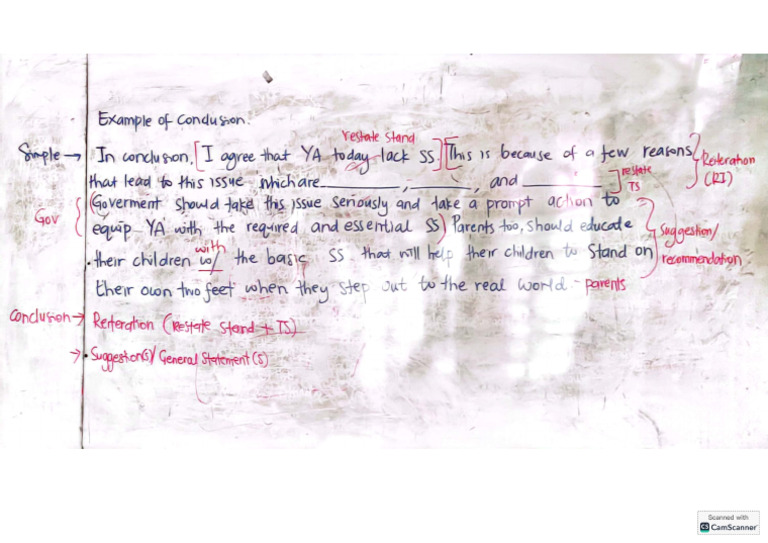 Example of Conclusion.
restate stand
Simple → In conclusion, [I agree that YA today lack SS] [This is because of a few reasons
Reiteration
(RI)
that lead to this issue which are __________, ________, and __________
restate
TS
Gov
(Goverment should take this issue seriously and take a prompt action to
equip YA with the required and essential SS) Parents too, should educate
suggestion/
recommendation
with
their children w/ the basic SS that will help their children to stand on
their own two feet when they step out to the real world. - parents
Conclusion → Reiteration (Restate stand + TS)
→ • Suggestion(s)/ General Statement(s)
Scanned with
CamScanner